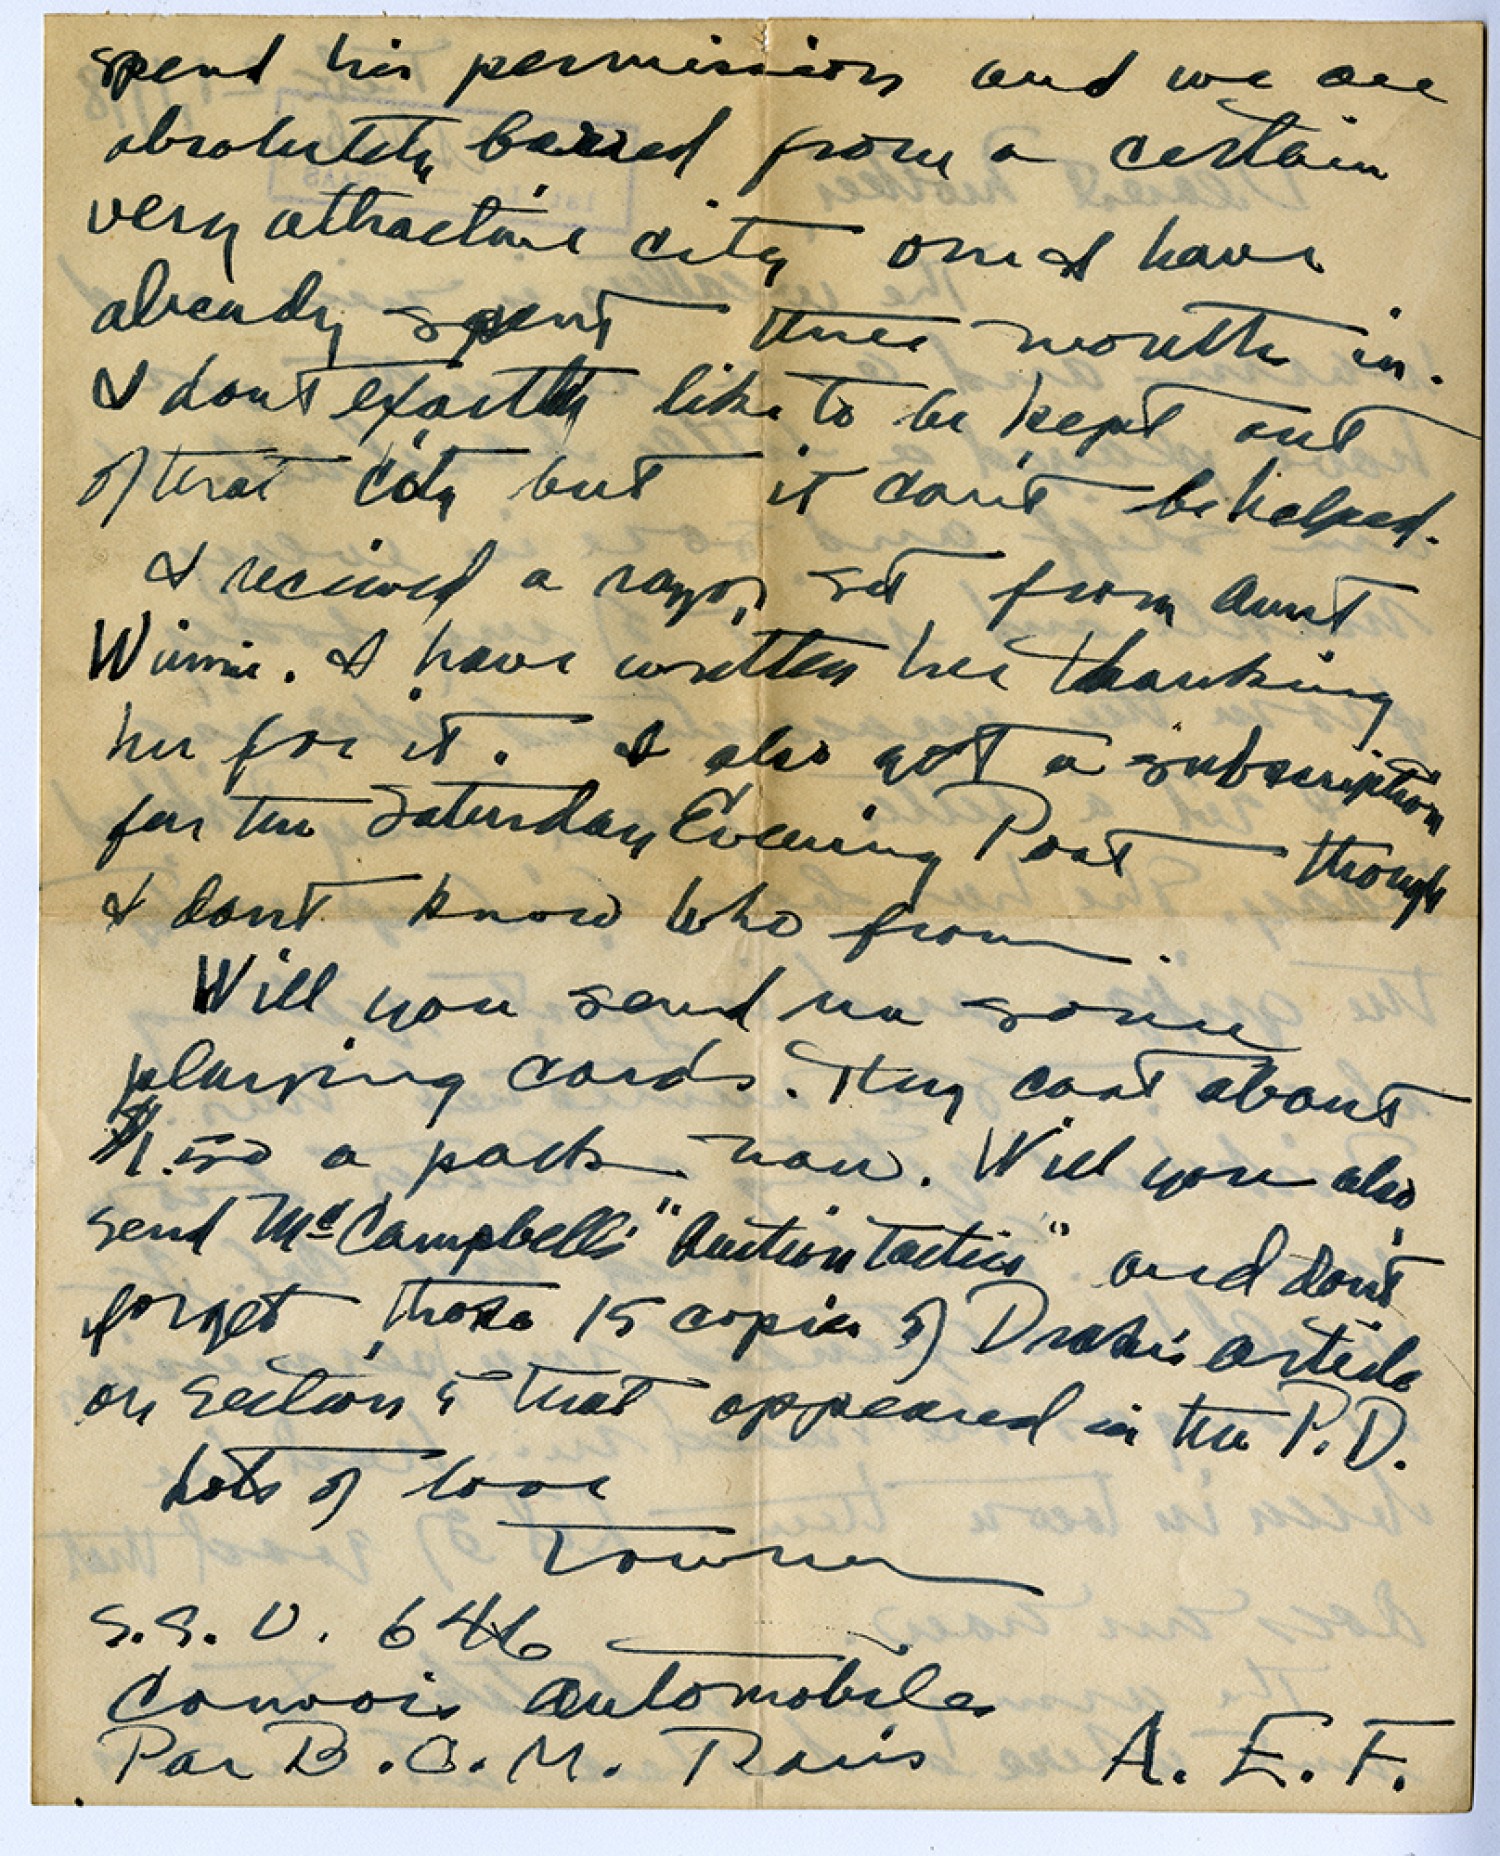 spend his permission and we are
absolutely barred from a certain
very attractive city one I have
already spent three month in.
I dont exactly like to be kept out
of that city but it can't be helped.
I recieved a razor set from Aunt
Winnie. I have written her thanking
her for it. I also got a subscription
for the Saturday Evening Post though
I dont know who from.
Will you send me some
playing cards. They cost about
$1.50 a pack now. Will you also
send McCampbell's "Auction Tactics" and don't
forget those 15 copies of Drake's article
on Section 5 that appeared in the P.D.
Lots of love
S.S.U. 646
Convois Automobiles
Par B.C.M. Paris A.E.F.